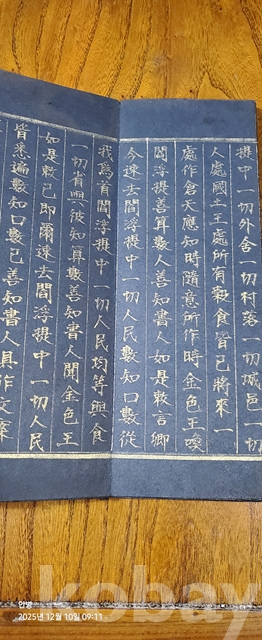 提中一切外舍一切村落一切城邑一切
人處國土王處所有穀食皆已將來一
處作倉天應知時隨意所作時金色王喚
閻浮提善算數人善知書人如是敕言卿
今速去閻浮提中一切人民數知口數從
我為首閻浮提中一切人民均等與食
一切彼知算數善知書人聞金色王
如是敕已即爾速去閻浮提中一切人民
皆悉遍數知口數已善知書人具作文案
안녕
2025년 12월 10일 09:11
kobay